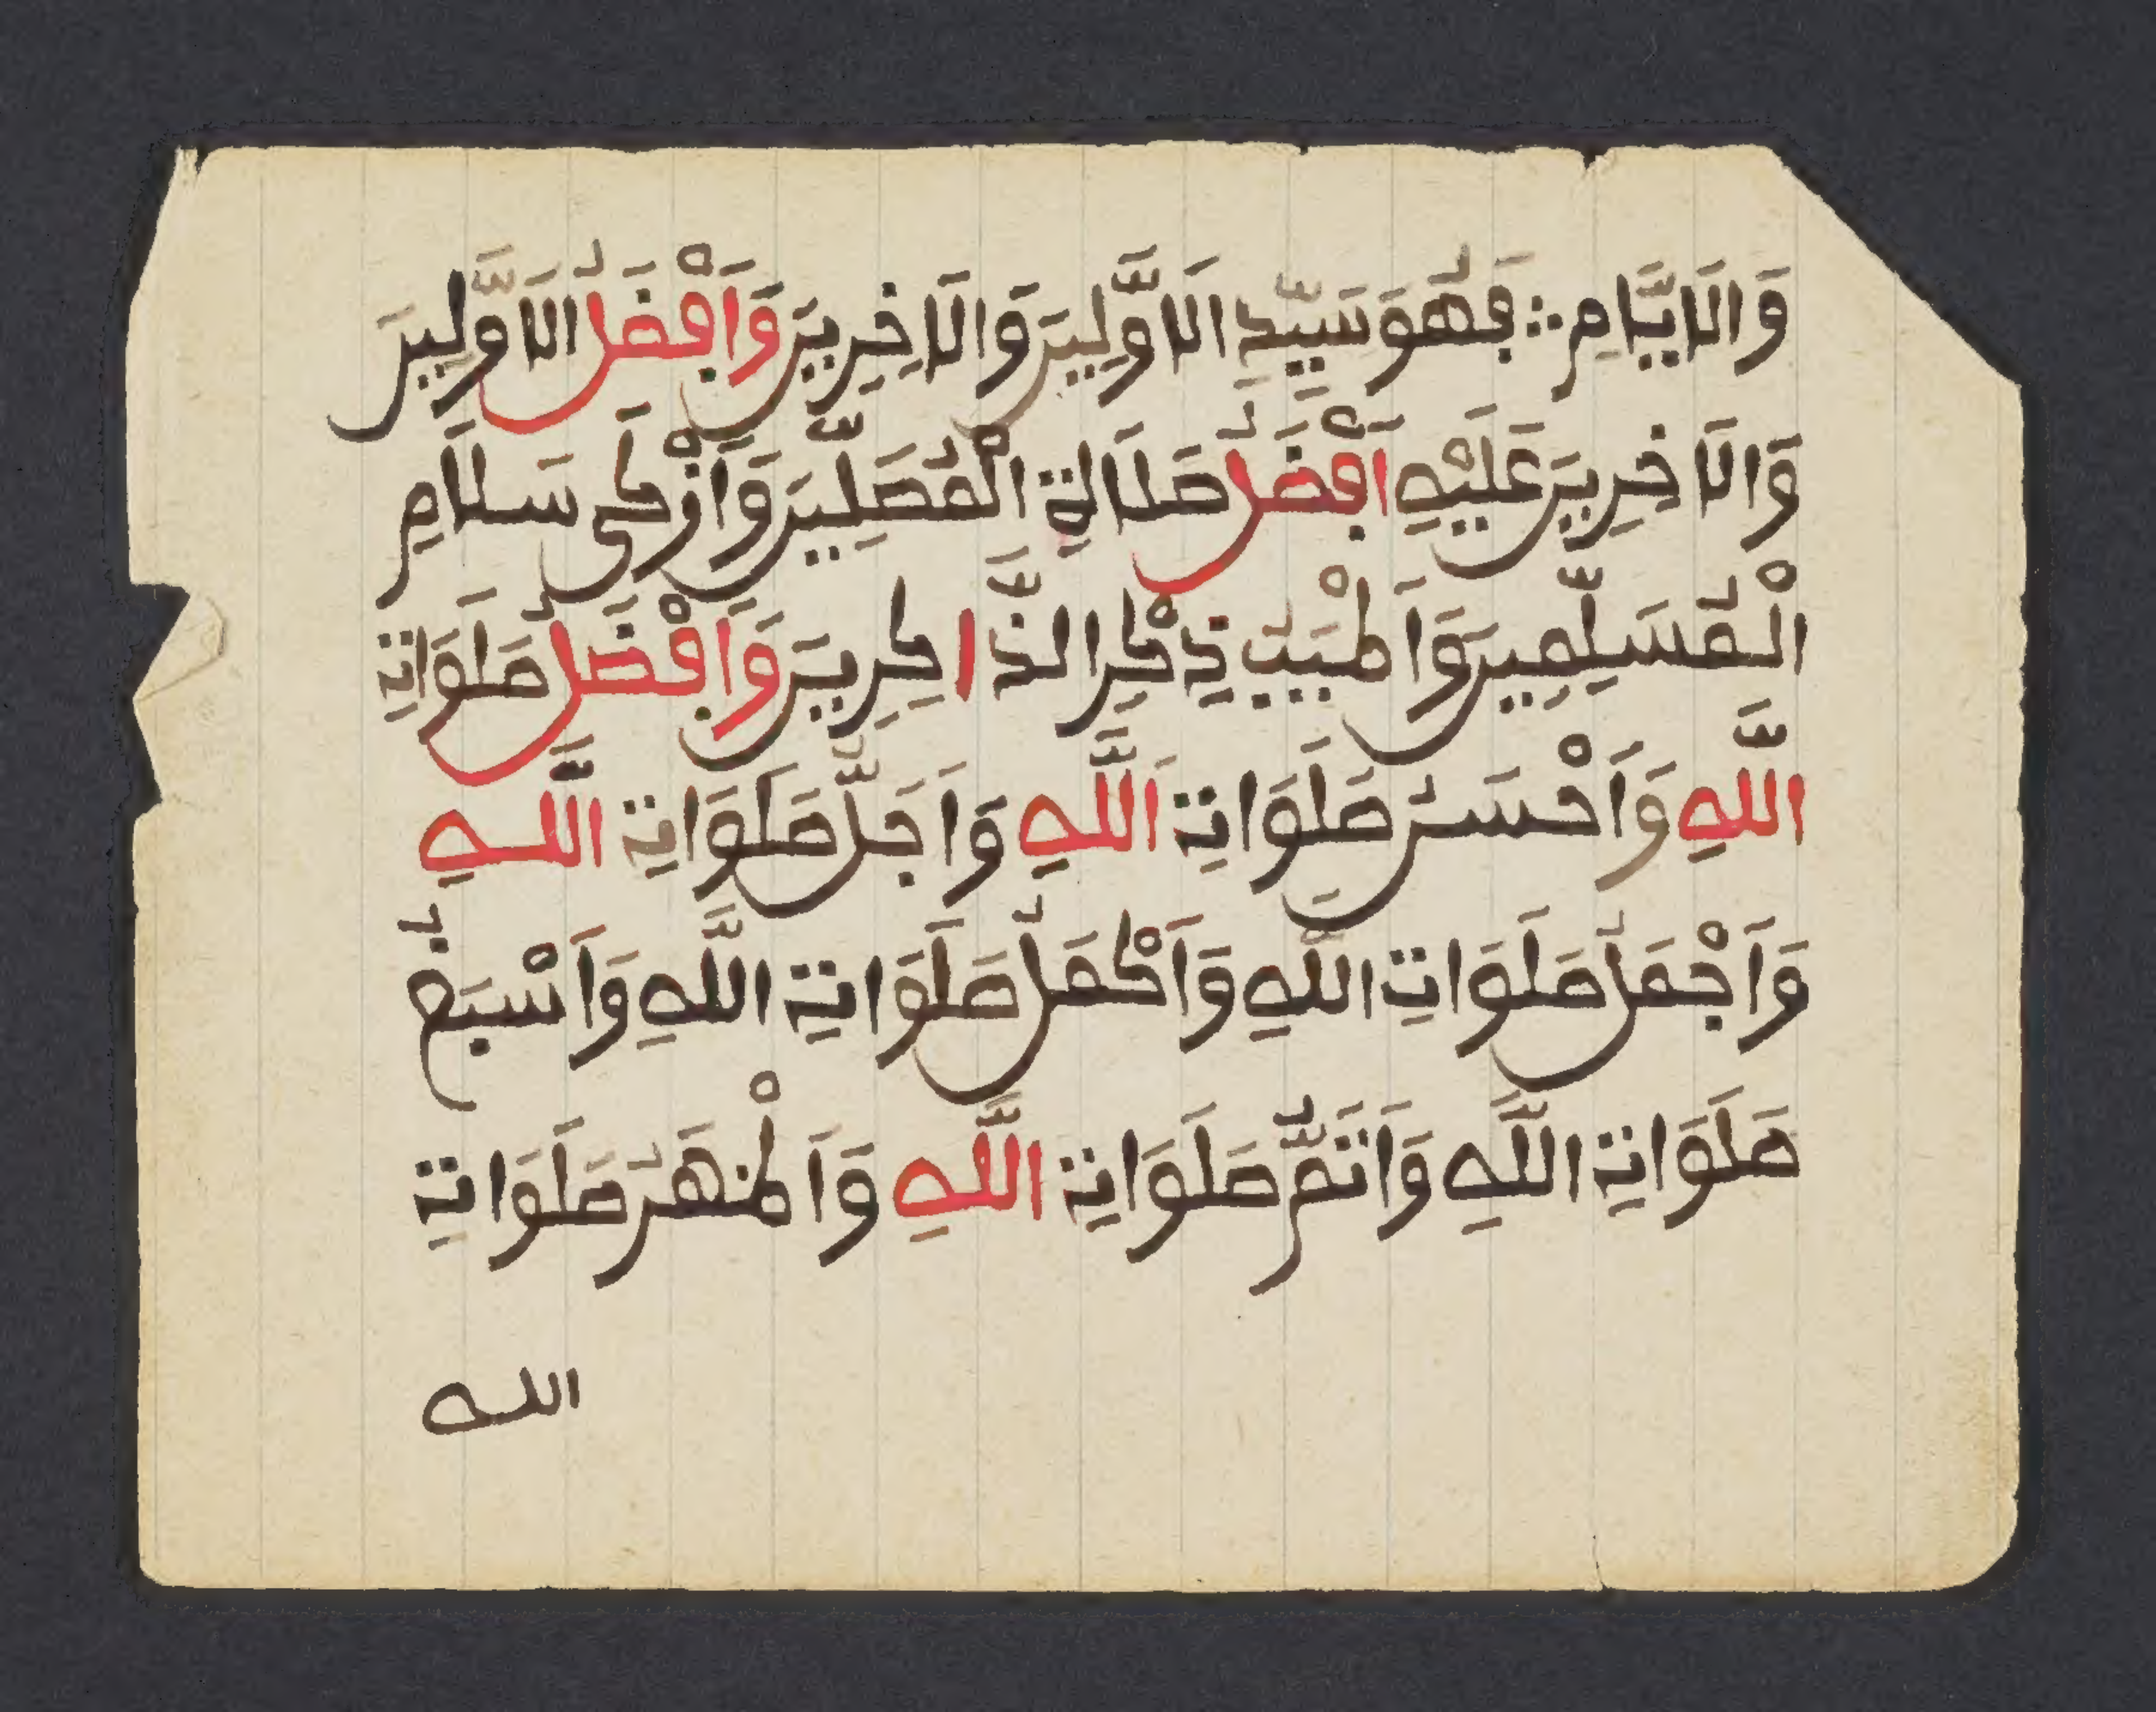 وَالَايَّامِ ؞ فَهُوَ سَيِّدِ الَاوَّلِينَ وَالَاخِرِينَ وَاَفْضَلُ الَاوَّلِينَ
وَالَاخِرِينَ عَلَيْهِ اَفْضَلُ صَلَالةِ الْمُصَلِّينَ وَاَزْكَى سَلَامِ
الْمُسَلِّمِينَ وَاَطْيَبِ ذِكْرِ الذَّاكِرِينَ وَاَفْضَلُ صَلَوَاتِ
اللَّهِ وَاَحْسَنُ صَلَوَاتِ اللَّهِ وَاَجَلُّ صَلَوَاتِ اللَّهِ
وَاَجْمَلُ صَلَوَاتِ اللَّهِ وَاَكْمَلُ صَلَوَاتِ اللَّهِ وَاَسْبَغُ
صَلَوَاتِ اللَّهِ وَاَتَمُّ صَلَوَاتِ اللَّهِ وَاَطْهَرُ صَلَوَاتِ
الله